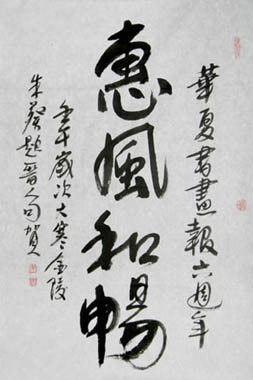 華夏書畫報六週年
惠風和暢
壬午歲次大寒金陵
朱葵題晉人句賀